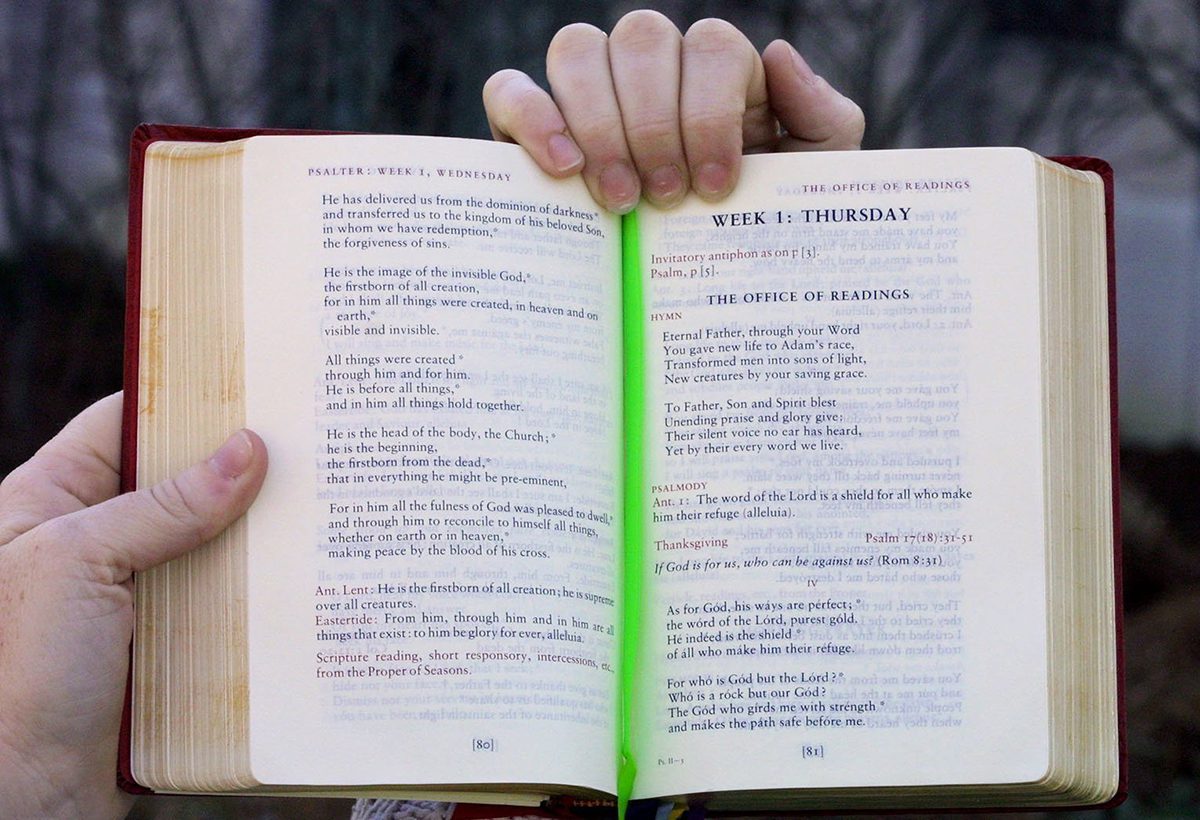 PSALTER: WEEK 1, WEDNESDAY
He has delivered us from the dominion of darkness*
and transferred us to the kingdom of his beloved Son,
in whom we have redemption,*
the forgiveness of sins.
He is the image of the invisible God,*
the firstborn of all creation,
for in him all things were created, in heaven and on
earth,*
visible and invisible.
All things were created *
through him and for him.
He is before all things,*
and in him all things hold together.
He is the head of the body, the Church; *
he is the beginning,
the firstborn from the dead,*
that in everything he might be pre-eminent,
For in him all the fulness of God was pleased to dwell,*
and through him to reconcile to himself all things,
whether on earth or in heaven,*
making peace by the blood of his cross.
Ant. Lent: He is the firstborn of all creation; he is supreme
over all creatures.
Eastertide: From him, through him and in him are all
things that exist: to him be glory for ever, alleluia.
Scripture reading, short responsory, intercessions, etc.,
from the Proper of Seasons.
[80]
THE OFFICE OF READINGS
WEEK 1: THURSDAY
Invitatory antiphon as on p [3].
Psalm, p [5].
THE OFFICE OF READINGS
HYMN
Eternal Father, through your Word
You gave new life to Adam's race,
Transformed men into sons of light,
New creatures by your saving grace.
To Father, Son and Spirit blest
Unending praise and glory give:
Their silent voice no ear has heard,
Yet by their every word we live.
PSALMODY
Ant. 1: The word of the Lord is a shield for all who make
him their refuge (alleluia).
Thanksgiving Psalm 17(18):31-51
If God is for us, who can be against us? (Rom 8:31)
IV
As for Gód, his wáys are pérfect; *
the word of the Lórd, purest góld.
Hé indéed is the shield *
of áll who máke him their réfuge.
For whó is Gód but the Lórd? *
Whó is a róck but our Gód?
The Gód who gírds me with stréngth *
and mákes the páth safe befóre me.
Ps. II—3
[81]